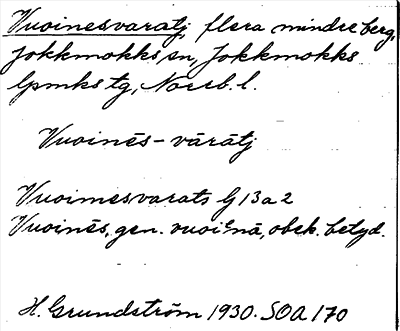 Vuoinesvaratj, flera mindre berg,
Jokkmokks sn, Jokkmokks
lpmks tg, Norrb. l.
Vuoinēs-vārātj
Vuoimesvarats G 13 a 2
Vuoinēs, gen. vuoiᵋnā, obek. betyd.
H. Grundström 1930. SOA 170